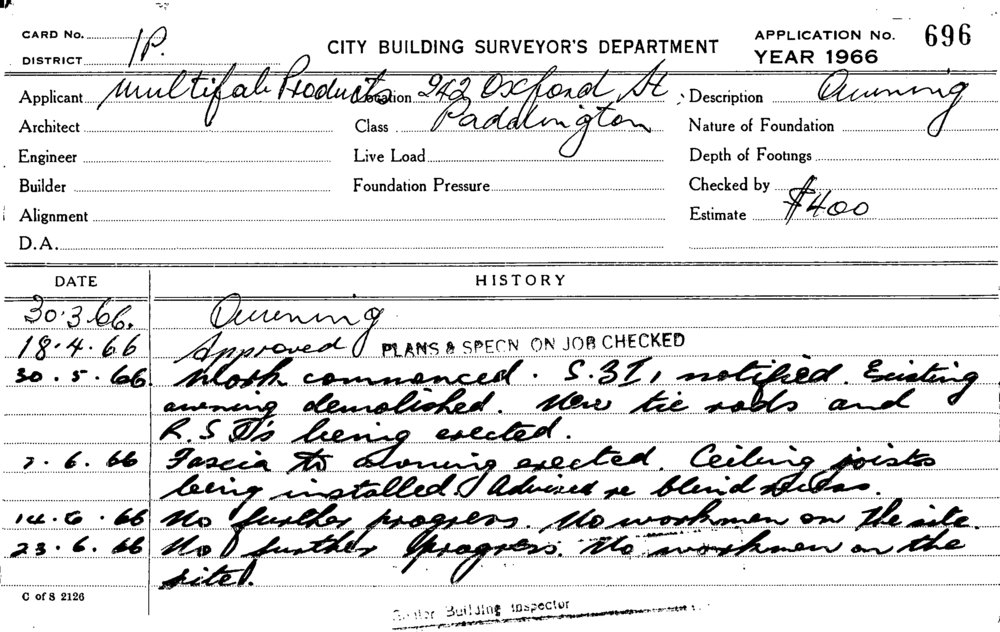 CARD No. 1P. CITY BUILDING SURVEYOR'S DEPARTMENT APPLICATION No. 696
DISTRICT YEAR 1966
Applicant Multifab Products Location 242 Oxford St Description Awning
Architect Class Paddington Nature of Foundation
Engineer Live Load Depth of Footings
Builder Foundation Pressure Checked by
Alignment Estimate $400
D.A.
DATE HISTORY
30.3.66. Awning
18.4.66 Approved PLANS & SPECN ON JOB CHECKED
30.5.66 Work commenced. notified. Existing
awning demolished. New tie rods and
R.S.J's being erected.
7.6.66 Fascia to awning erected. Ceiling joists
being installed. Advised re blind
14.6.66 No further progress. No workmen on the site.
23.6.66 No further progress. No workmen on the
site.
C of S 2126
Building Inspector